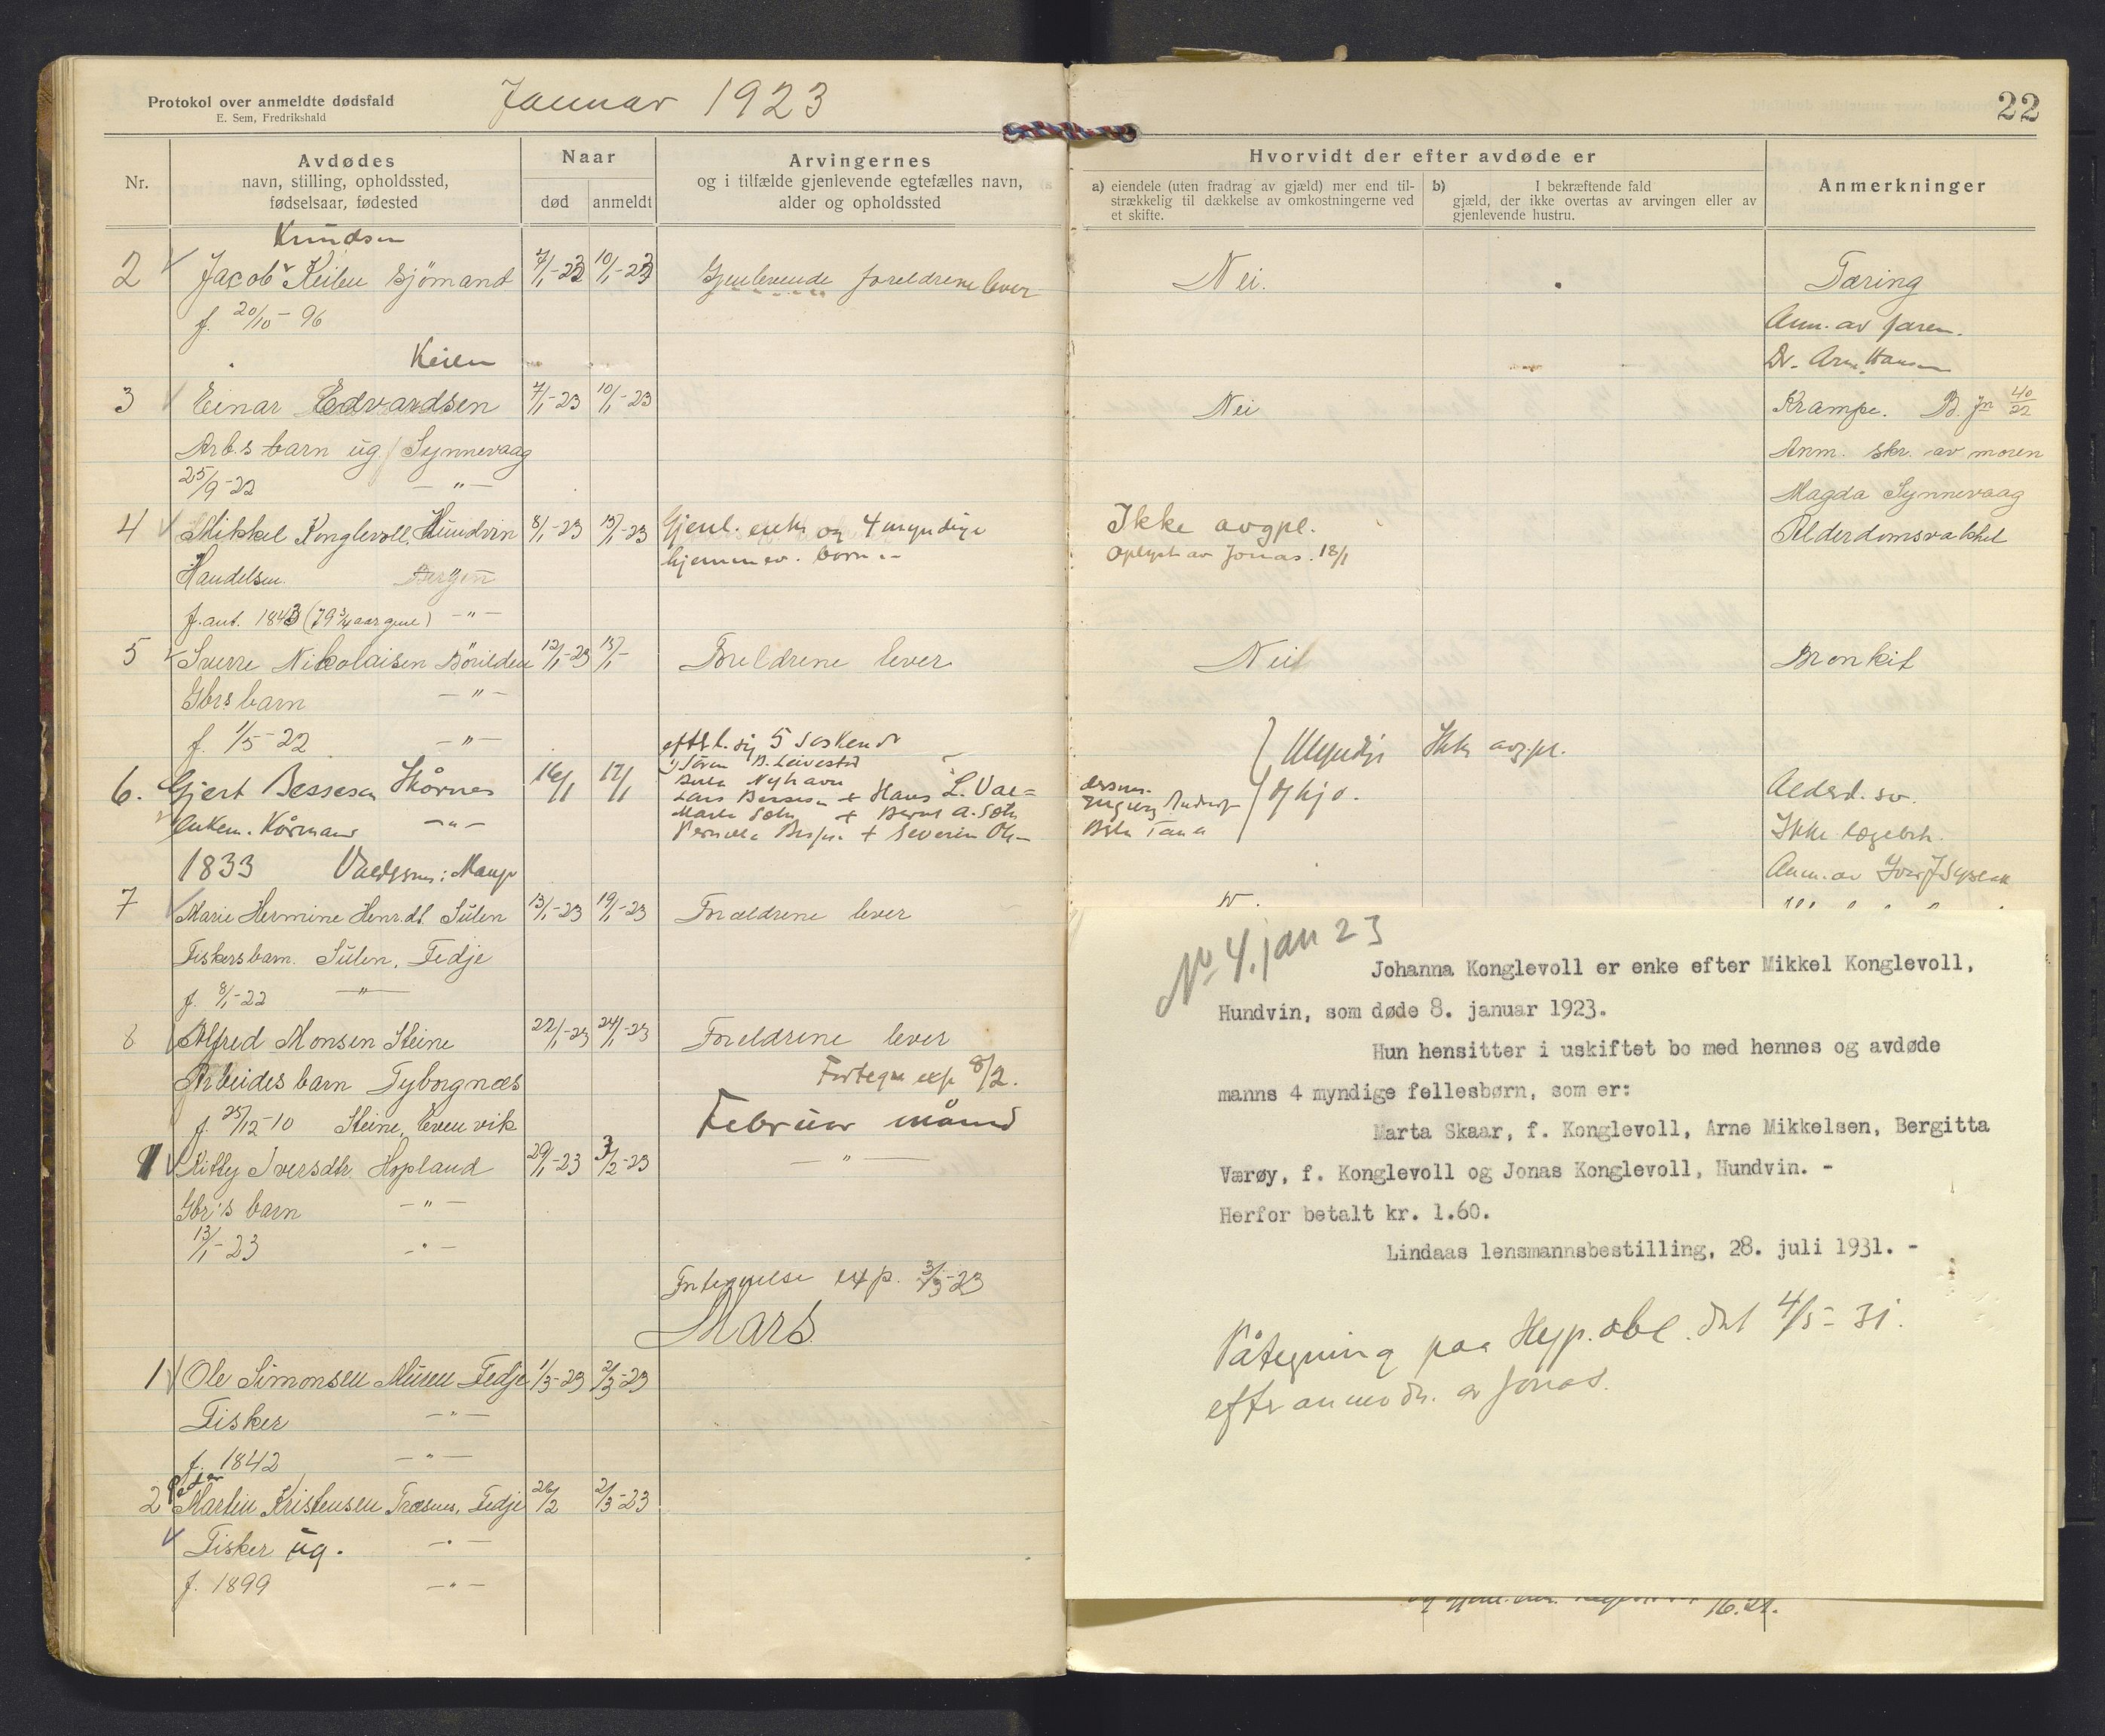 Protokol over anmeldte dødsfald
E. Sem, Fredrikshald
Januar 1923
Nr.
Avdødes
navn, stilling, opholdssted,
fødselsaar, fødested
Naar
død
anmeldt
Arvingernes
og i tilfælde gjenlevende egtefælles navn,
alder og opholdssted
Knudsen
2 Jacob Keilen Sjömand 7/1-23 10/1-23 Gjenlevende foreldrene lever
f. 20/10-96
Keilen
3 Einar Edvardsen 7/1-23 10/1-23
Arb.s barn ug. Synnevaag
25/9-22 -"-
4 Mikkel Konglevoll, Hundvin 8/1-23 13/1-23 Gjenl. enke og 4 myndige
Handelsm. Bergen hjemmev. børn
f. ant. 1843 (79 3/4 aar gml) -"-
5 Sverre Nikolaisen Dörilden 12/1-23 15/1- Foreldrene lever
Gbrs barn -"-
f. 1/5-22 -"-
efterl. sig 5 søskende
6. Gjert Bessesen Skårnes 16/1 17/1
Enkem. Kårmand -"-
1833
7 Marie Hermine Henr.dt. Sulen 13/1-23 19/1-23 Forældrene lever
Fiskersbarn. Sulen, Fedje
f. 8/1-22 -"-
8 Alfred Monsen Steine 22/1-23 24/1-23 Foreldrene lever
Arbeides barn Tyborgnæs Fortegn exp 8/2.
f. 25/12-10 Steine, Evenvik
Februar måned
1 Kitty Iversdtr. Hopland 29/1-23 3/2-23 -"-
Gbr's barn -"-
13/1-23 -"-
Fortegnelse exp. 3/3-23
Mars
1 Ole Simonsen Muren Fedje 1/3-23 2/3-23
Fisker -"-
f. 1842 -"-
Peder
2 Martin Kristensen Træsnes, Fedje 26/2 2/3-23
Fisker ug. -"-
f. 1899 -"-
22
Hvorvidt der efter avdøde er
a) eiendele (uten fradrag av gjæld) mer end til-
strækkelig til dækkelse av omkostningerne ved
et skifte.
b) I bekræftende fald
gjæld, der ikke overtas av arvingen eller av
gjenlevende hustru.
Anmerkninger
Nei. Tæring
Anm. av faren.
Dr. Arn. Hansen
Nei Krampe. B. jn 40/22
Anm. skr. av moren
Magda Synnevaag
Ikke avgpl. Alderdomsvakkel
Oplyst av Jonas. 18/1
Nei Bronkit
Myndige Ikke avg.pl.
og hjv. Alderd. sv.
Ikke lægebeh.
No 4. jan 23
Johanna Konglevoll er enke efter Mikkel Konglevoll,
Hundvin, som døde 8. januar 1923.
Hun hensitter i uskiftet bo med hennes og avdøde
manns 4 myndige fellesbørn, som er:
Marta Skaar, f. Konglevoll, Arne Mikkelsen, Bergitta
Værøy, f. Konglevoll og Jonas Konglevoll, Hundvin. -
Herfor betalt kr. 1.60.
Lindaas lensmannsbestilling, 28. juli 1931. -
Påtegning paa Hyp. obl. dat 4/5-31.
efter anmodn. av Jonas.